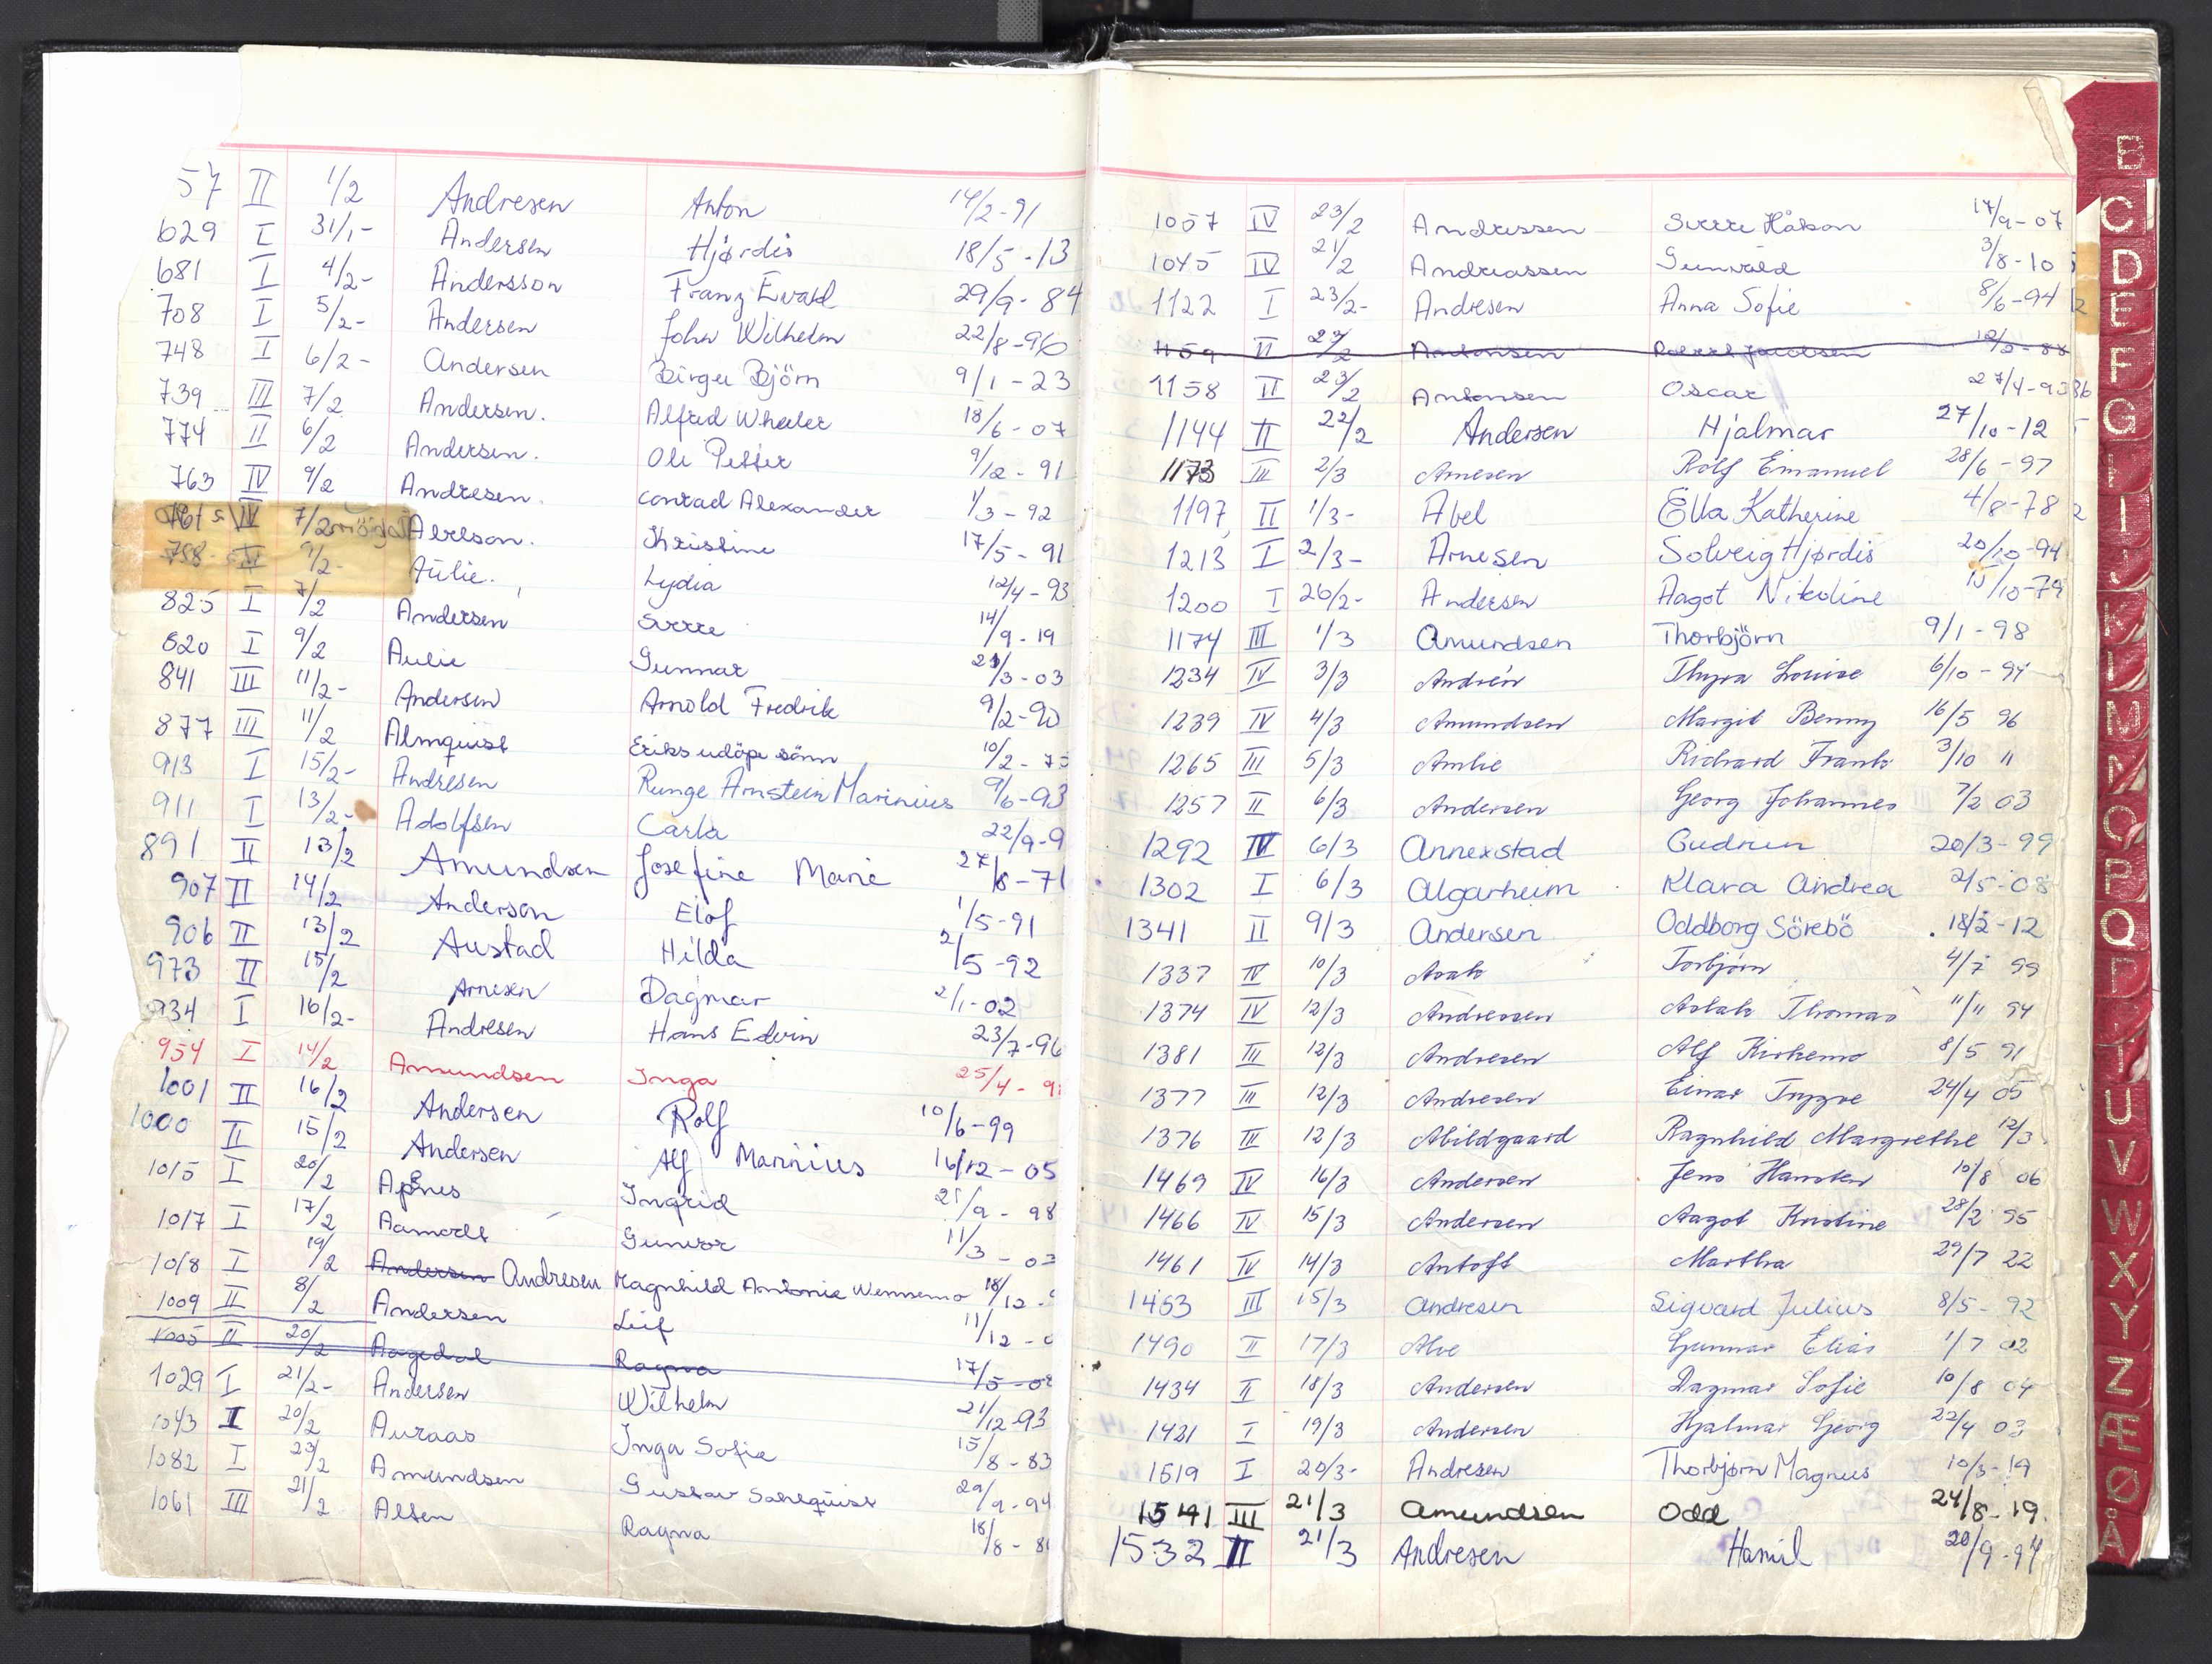 57 II 1/2 Andresen Anton 14/2-91
629 I 31/1- Andersen Hjørdis 18/5-13
681 I 4/2- Andersson Franz Evald 29/9-84
708 I 5/2- Andersen John Wilhelm 22/8-96
748 I 6/2- Andersen Birger Björn 9/1-23
739 III 7/2 Andersen. Alfred Wheeler 18/6-07
774 II 6/2 Andersen. Ole Petter 9/12-91
763 IV 9/2 Andresen. Conrad Alexander 1/3-92
IV 7/2 Abelson. Kristine 17/5-91
758 IV 7/2- Aulie. Lydia 12/4-93
825 I 7/2 Andersen Sverre 14/9-19
820 I 9/2 Aulie Gunnar 21/3-03
841 III 11/2- Andersen Arnold Fredrik 9/2-90
877 III 11/2 Almquist Eriks 10/2-75
913 I 15/2- Andresen Runge Arnstein Marinius 9/6-93
911 I 13/2- Adolfsen Carla 22/9-9
891 II 13/2 Amundsen Josefine Marie 27/8-71
907 II 14/2 Anderson Elof 1/5-91
906 II 13/2 Austad Hilda 2/5-92
973 II 15/2 Arnesen Dagmar 2/1-02
934 I 16/2- Andresen Hans Edvin 23/7-96
954 I 14/2 Amundsen Inga 25/4-9
1001 II 16/2 Andersen Rolf 10/6-99
1000 II 15/2 Andersen Alf Marinius 16/12-05
1015 I 20/2 Ingrid 21/9-98
1017 I 17/2 Aamodt Gunvor 11/3-03
1018 I 19/2 Andersen Andresen Ragnhild Antonie Wennemo 18/12-
1009 II 8/2 Andersen Leif 11/12-0
1005 II 20/2 Aagedal Ragna 17/5-02
1029 I 21/2- Andersen Wilhelm 21/12-93
1043 I 20/2 Auraas Inga Sofie 15/8-83
1082 I 23/2 Amundsen Gustav Sahlquist 29/9-94
1061 III 21/2 Alsen Ragna 18/8-8
1057 IV 23/2 Andressen Sverre Håkon 17/9-07
1045 IV 21/2 Andreassen Gunvald 3/8-10
1122 I 23/2- Andresen Anna Sofie 8/6-94
1159 II 23/2 Antonsen Jacobsen 12/2-88
1158 II 23/2 Antonsen Oscar 27/4-93
1144 II 22/2 Andersen Hjalmar 27/10-12
1173 III 2/3 Arnesen Rolf Emanuel 28/6-97
1197 II 1/3- Abel Ella Katherine 4/8-78
1213 I 2/3- Arnesen Solveig Hjørdis 20/10-94
1200 I 26/2- Andersen Aagot Nikoline 15/10-79
1174 III 1/3 Amundsen Thorbjörn 9/1-98
1234 IV 3/3 Andrén Thyra Louise 6/10-94
1239 IV 4/3 Amundsen Margit Benny 16/5 96
1265 III 5/3 Amlie Richard Frank 3/10 "
1257 II 6/3 Andersen Georg Johannes 7/2 03
1292 IV 6/3 Annexstad Gudrun 20/3-99
1302 I 6/3 Algarheim Klara Andrea 2/5-08
1341 II 9/3 Andersen Oddborg Sörebö 18/2-12
1337 IV 10/3 Torbjørn 4/7 99
1374 IV 12/3 Andressen Aslak Thomas 11/11 94
1381 III 12/3 Andresen Alf Kirkemo 8/5 91
1377 III 12/3 Andresen Einar Trygve 24/4 05
1376 III 12/3 Abildgaard Ragnhild Margrethe 12/3
1469 IV 16/3 Andersen Jens Hansten 10/8 06
1466 IV 15/3 Andersen Aagot Kristine 28/2 95
1461 IV 14/3 Antoft Martha 29/7 22
1463 III 15/3 Andresen Sigvard Julius 8/5-92
1490 II 17/3 Alve Gunnar Elias 1/7 02
1434 II 18/3 Andersen Dagmar Sofie 10/8 04
1421 I 19/3 Andersen Hjalmar Georg 22/4 03
1519 I 20/3- Andresen Thorbjørn Magnus 10/3-19
1541 III 21/3 Amundsen Odd 24/8-19.
1532 II 21/3 Andresen Hamil 20/9-94
B
C
D
E
F
G
H
I
J
K
L
M
N
O
P
Q
R
T
U
V
W
X
Y
Z
Æ
Ø
Å